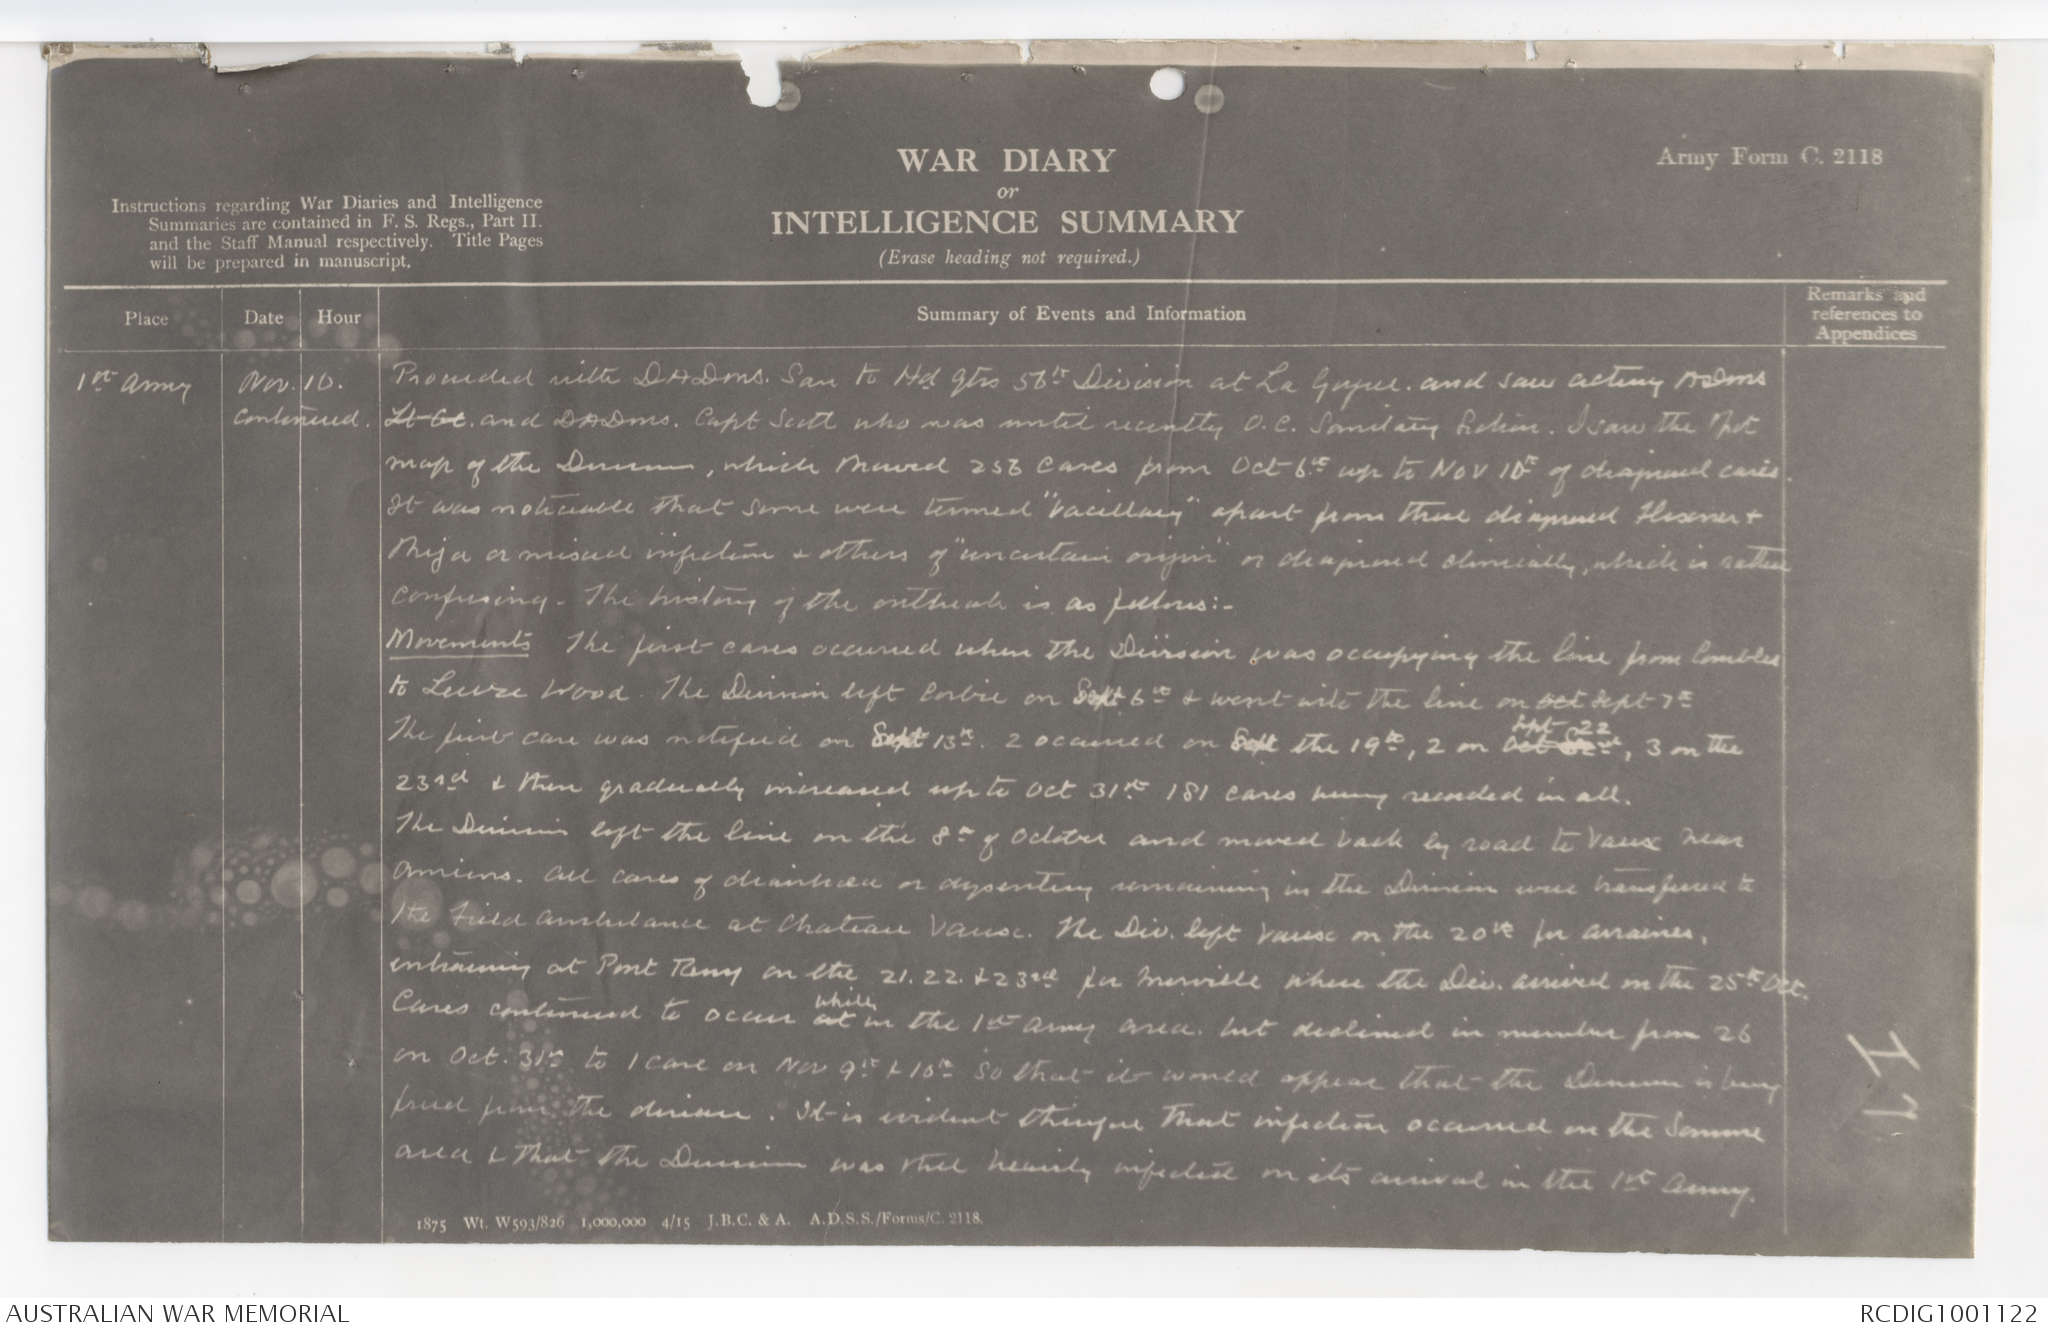 WAR DIARY
or
INTELLIGENCE SUMMARY
(Erase heading not required.)
Army Form C. 2118
Instructions regarding War Diaries and Intelligence
Summaries are contained in F. S. Regs., Part II.
and the Staff Manual respectively. Title Pages
will be prepared in manuscript.
Place
Date
Hour
Summary of Events and Information
Remarks and
references to
Appendices
1st Army
Nov. 10.
continued.
Proceeded with DADMS. San to Hd Qtrs 56th Division at La Gorgue. and saw acting ADMS
Lt Col. and DADMS. Capt Scott who was until recently O.C. Sanitary Section. I saw the spot
map of the Division, which showed 256 cases from Oct 6th up to Nov 10th of diagnosed cases.
It was noticeable that some were termed "bacillary" apart from those diagnosed Flexner +
Shiga or mixed infection & others of "uncertain origin" or diagnosed clinically, which is rather
confusing. The history of the outbreak is as follows:-
Movements The first cases occurred when the Division was occupying the line from Combles
to Leuze Wood. The Division left Corbie on Sept 6th & went into the line on Oct Sept 7th
The first case was notified on Sept 13th. 2 occurred on Sept the 19th, 2 on Sept 22, 3 on the
23rd & then gradually increased up to Oct 31st 181 cases being recorded in all.
The Division left the line on the 8th of October and moved back by road to Vaux near
Amiens. All cases of diarrhoea or dysentery remaining in the Division were transferred to
the Field Ambulance at Chateau Vaux. The Div. left Vaux on the 20th for Airaines,
entraining at Pont Remy on the 21. 22. & 23rd for Merville where the Div. arrived on the 25th Oct.
Cases continued to occur at while in the 1st Army area. but declined in number from 26
on Oct. 31st to 1 case on Nov 9th & 10th so that it would appear that the Division is being
freed from the disease. It is evident therefore that infection occurred on the Somme
area & that the Division was still heavily infected on its arrival in the 1st Army.
17
1875 Wt. W593/826 1,000,000 4/15 J.B.C. & A. A.D.S.S./Forms/C. 2118.
AUSTRALIAN WAR MEMORIAL
RCDIG1001122